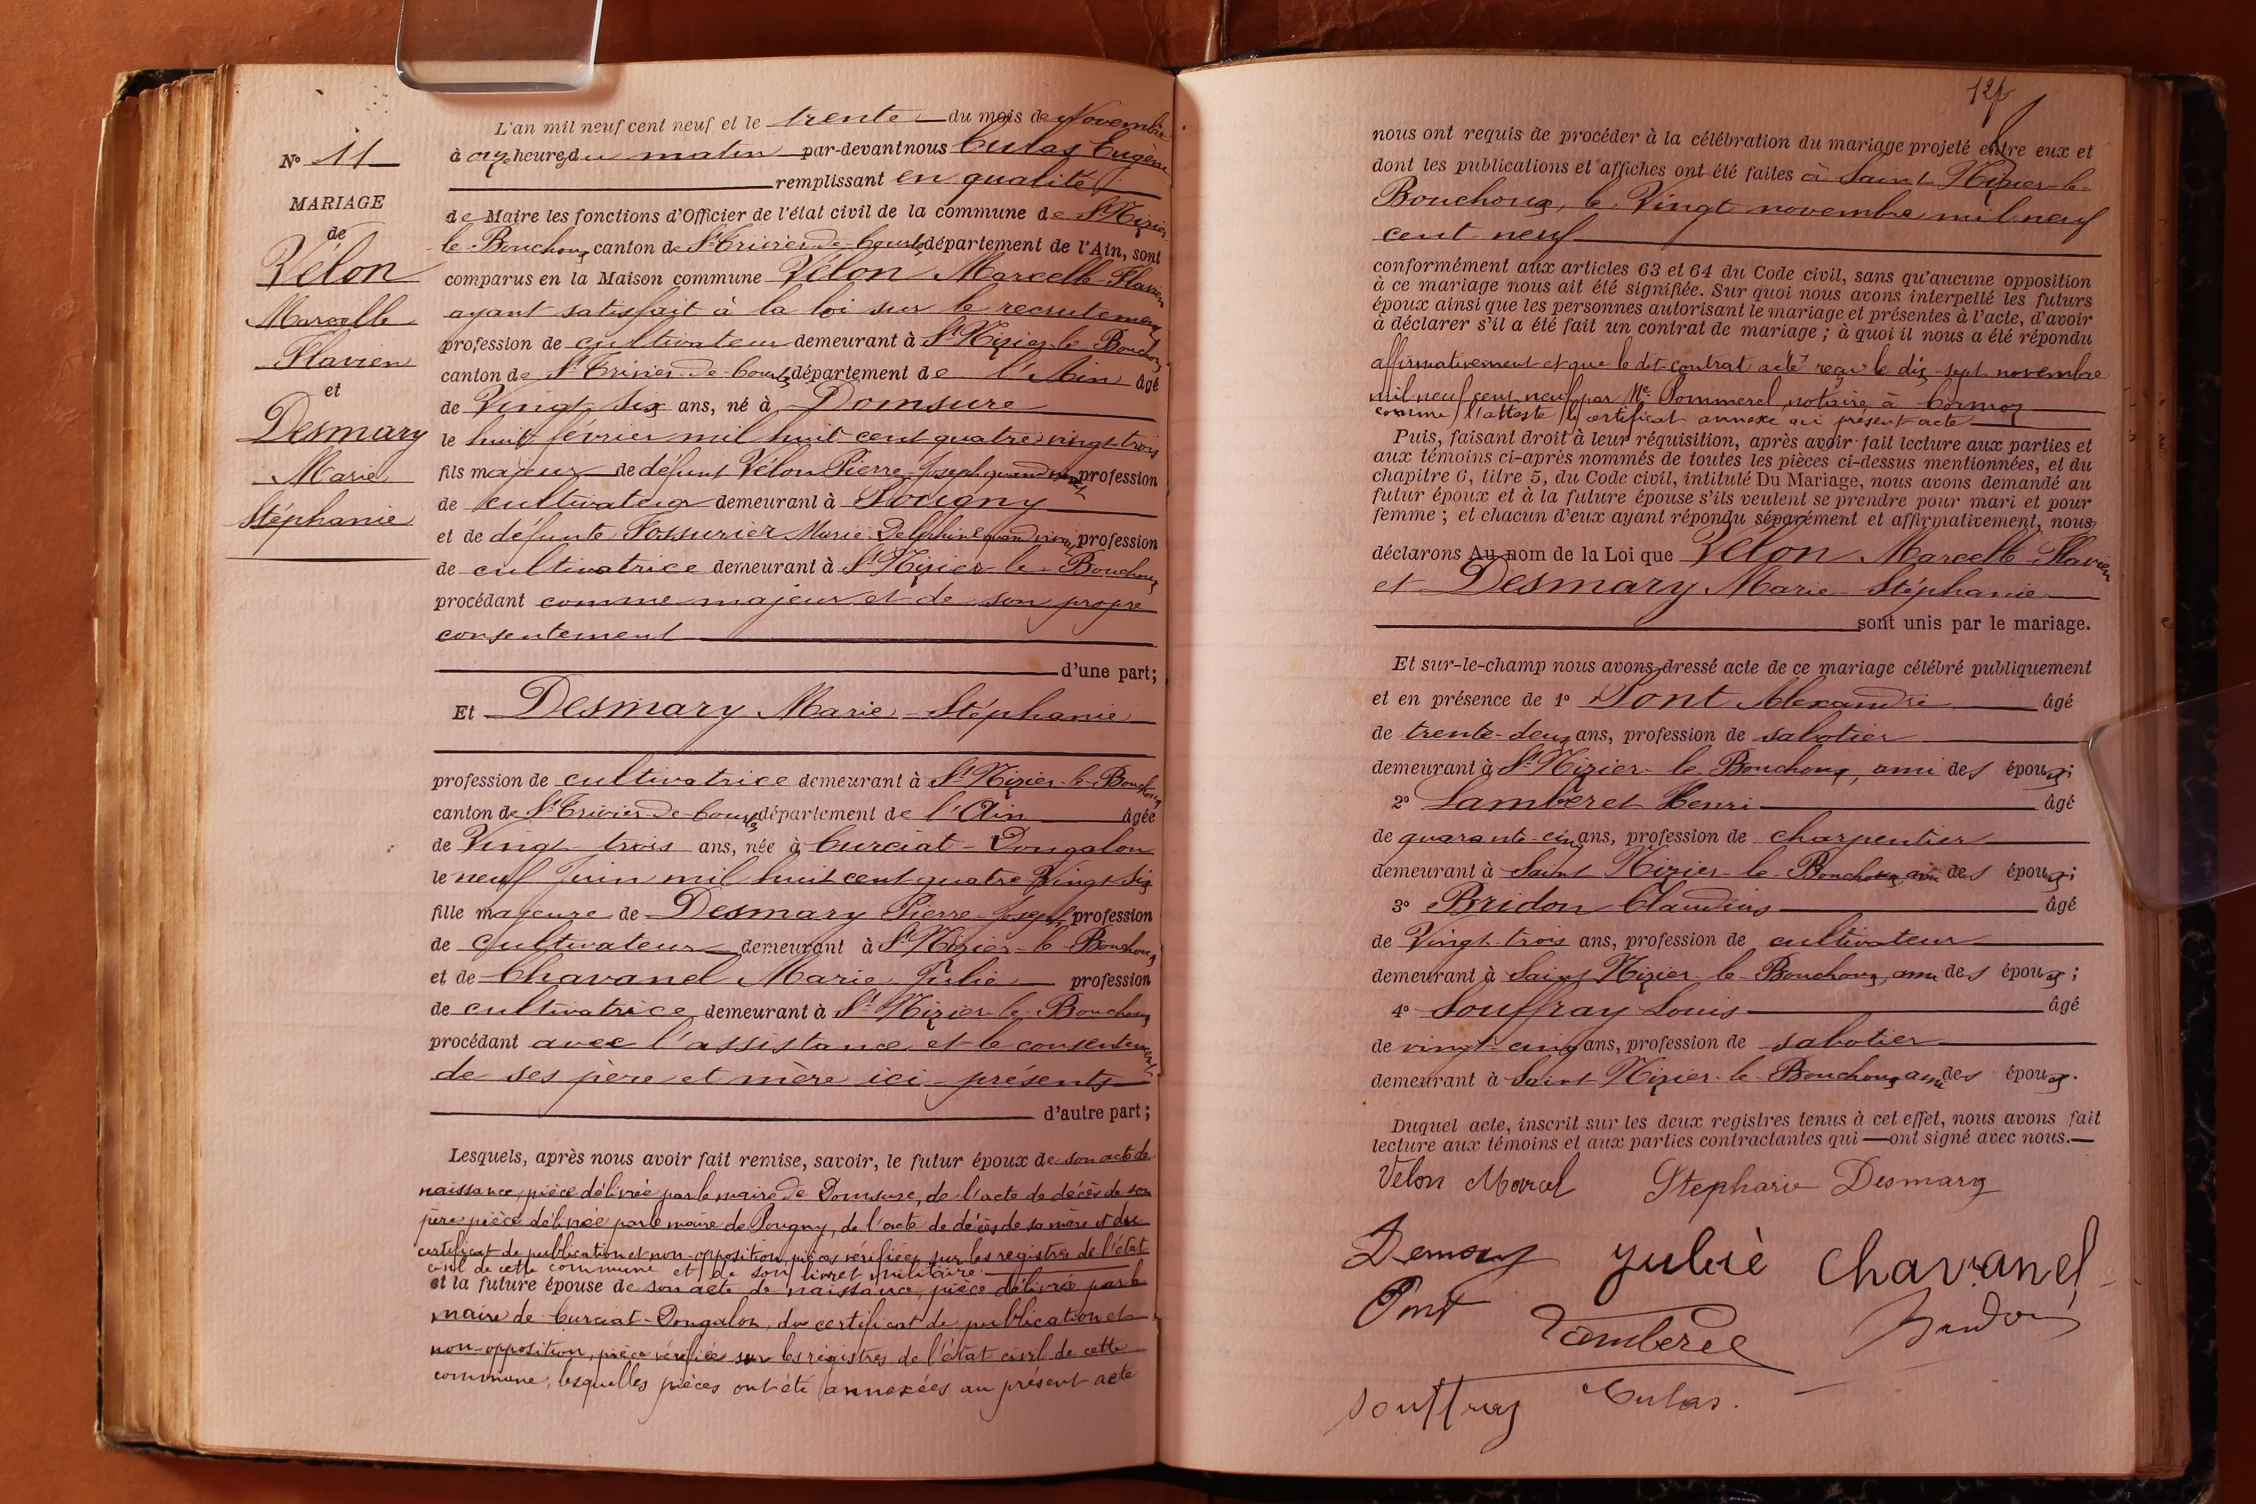 N° 11
MARIAGE
de
Vélon
Marcelle
Flavien
et
Desmary
Marie
Stéphanie
L'an mil neuf cent neuf et le trente du mois de Novembre
à onze heures du matin par-devant nous Culas Eugène
remplissant en qualité
de Maire les fonctions d'Officier de l'état civil de la commune de St Nizier
le-Bouchoux canton de St Trivier-de-Courtes département de l'Ain, sont
comparus en la Maison commune Vélon Marcelle Flavien
ayant satisfait à la loi sur le recrutement
profession de cultivateur demeurant à St Nizier-le-Bouchoux
canton de St Trivier-de-Courtes département de l'Ain âgé
de Vingt six ans, né à Domsure
le huit février mil huit cent quatre vingt trois
fils majeur de défunt Vélon Pierre Joseph quand vivait profession
de cultivateur demeurant à
et de défunte Marie Delphine quand vivait profession
de cultivatrice demeurant à St Nizier-le-Bouchoux
procédant comme majeur et de son propre
consentement
d'une part;
Et Desmary Marie Stéphanie
profession de cultivatrice demeurant à St Nizier-le-Bouchoux
canton de St Trivier-de-Courtes département de l'Ain âgée
de Vingt trois ans, née à Curciat-Dongalon
le neuf Juin mil huit cent quatre Vingt Six
fille majeure de Desmary Pierre Joseph, profession
de cultivateur demeurant à St Nizier-le-Bouchoux
et de Chavanel Marie Julie profession
de cultivatrice demeurant à St Nizier-le-Bouchoux
procédant avec l'assistance et le consentement
de ses père et mère ici présents
d'autre part;
Lesquels, après nous avoir fait remise, savoir, le futur époux de son acte de
naissance, pièce délivrée par le maire de Domsure, de l'acte de décès de son
père pièce délivrée par le maire de, de l'acte de décès de sa mère et du
certificat de publication et non-opposition, pièces vérifiées sur les registres de l'état
civil de cette commune et de son livret militaire
et la future épouse de son acte de naissance, pièce délivrée par le
maire de Curciat-Dongalon, du certificat de publication et
non-opposition, pièce vérifiée sur les registres de l'état civil de cette
commune, lesquelles pièces ont été annexées au présent acte
nous ont requis de procéder à la célébration du mariage projeté entre eux et
dont les publications et affiches ont été faites à Saint-Nizier-le-
Bouchoux, le Vingt novembre mil neuf
cent neuf
conformément aux articles 63 et 64 du Code civil, sans qu'aucune opposition
à ce mariage nous ait été signifiée. Sur quoi nous avons interpellé les futurs
époux ainsi que les personnes autorisant le mariage et présentes à l'acte, d'avoir
à déclarer s'il a été fait un contrat de mariage; à quoi il nous a été répondu
affirmativement et que le dit contrat a été reçu le dix-sept novembre
mil neuf cent neuf par Me Pommerel, notaire à Cormoz
comme l'atteste le certificat annexé au présent acte
Puis, faisant droit à leur réquisition, après avoir fait lecture aux parties et
aux témoins ci-après nommés de toutes les pièces ci-dessus mentionnées, et du
chapitre 6, titre 5, du Code civil, intitulé Du Mariage, nous avons demandé au
futur époux et à la future épouse s'ils veulent se prendre pour mari et pour
femme; et chacun d'eux ayant répondu séparément et affirmativement, nous
déclarons Au nom de la Loi que Vélon Marcelle Flavien
et Desmary Marie Stéphanie
sont unis par le mariage.
Et sur-le-champ nous avons dressé acte de ce mariage célébré publiquement
et en présence de 1° Pont Alexandre âgé
de trente-deux ans, profession de sabotier
demeurant à St Nizier-le-Bouchoux, ami des époux;
2° Lamberet Henri âgé
de quarante-cinq ans, profession de charpentier
demeurant à Saint Nizier-le-Bouchoux ami des époux;
3° Bridon Claudius âgé
de Vingt-trois ans, profession de cultivateur
demeurant à Saint Nizier-le-Bouchoux, ami des époux;
4° Souffray Louis âgé
de vingt-cinq ans, profession de sabotier
demeurant à Saint Nizier-le-Bouchoux ami des époux.
Duquel acte, inscrit sur les deux registres tenus à cet effet, nous avons fait
lecture aux témoins et aux parties contractantes qui — ont signé avec nous.—
Vélon Marcel Stephanie Desmary
Desmary Julie Chavanel
Pont Lamberet Bridon
Souffray Culas.